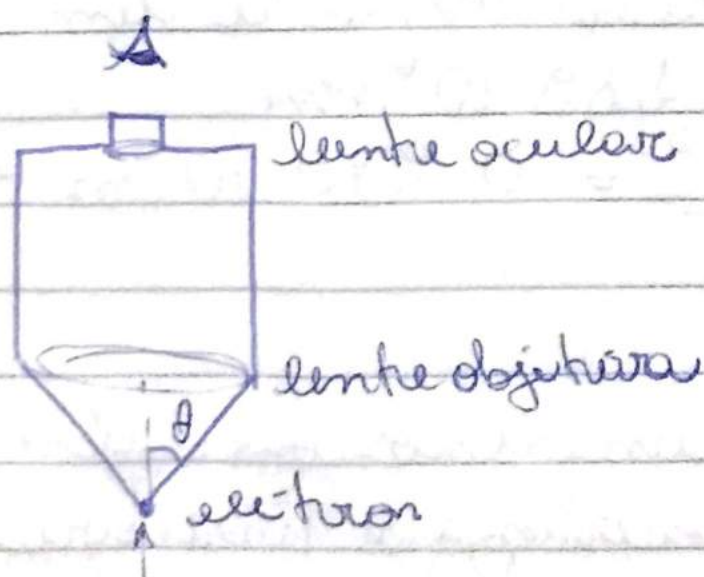 lente ocular
lente objetiva
θ
elétron